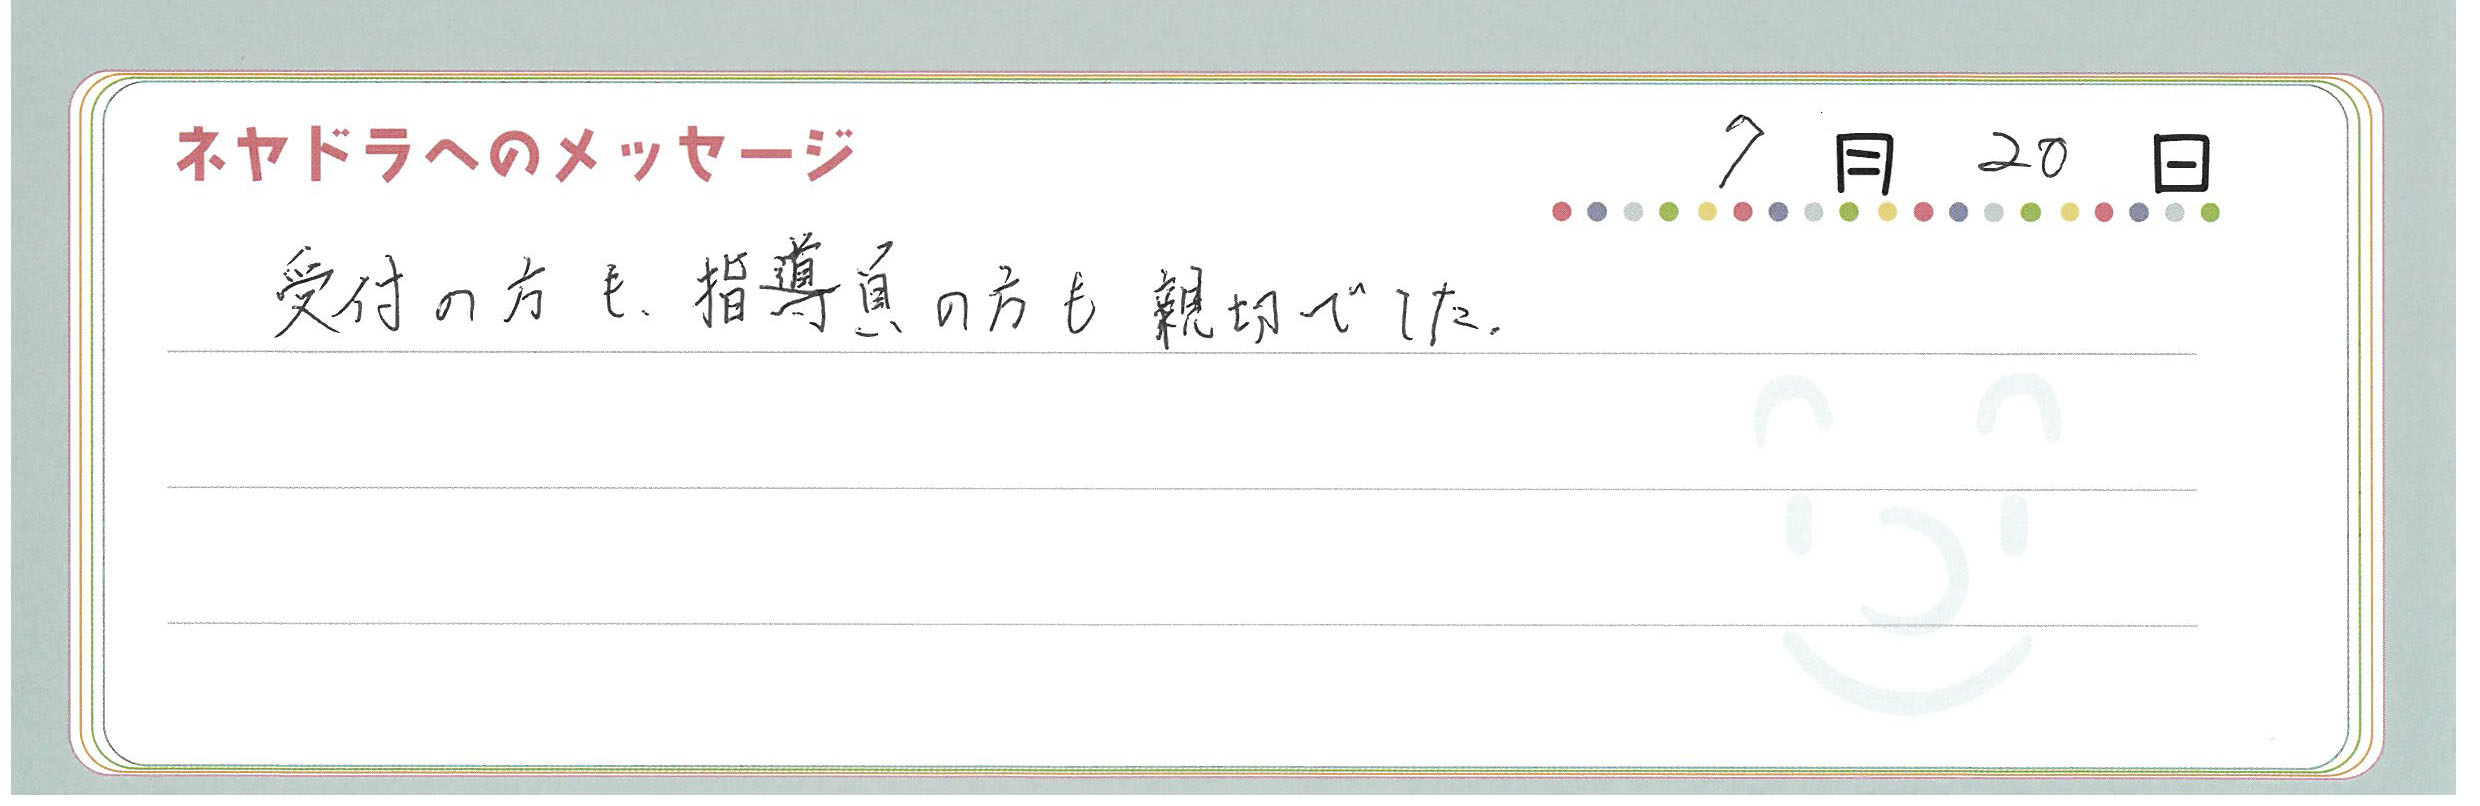 ネヤドラへのメッセージ
7月20日
受付の方も、指導員の方も親切でした。